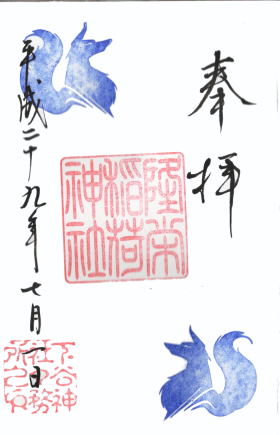 奉拝
隆栄
稲荷
神社
平成二十九年七月一日
下谷神
社社務
所之印